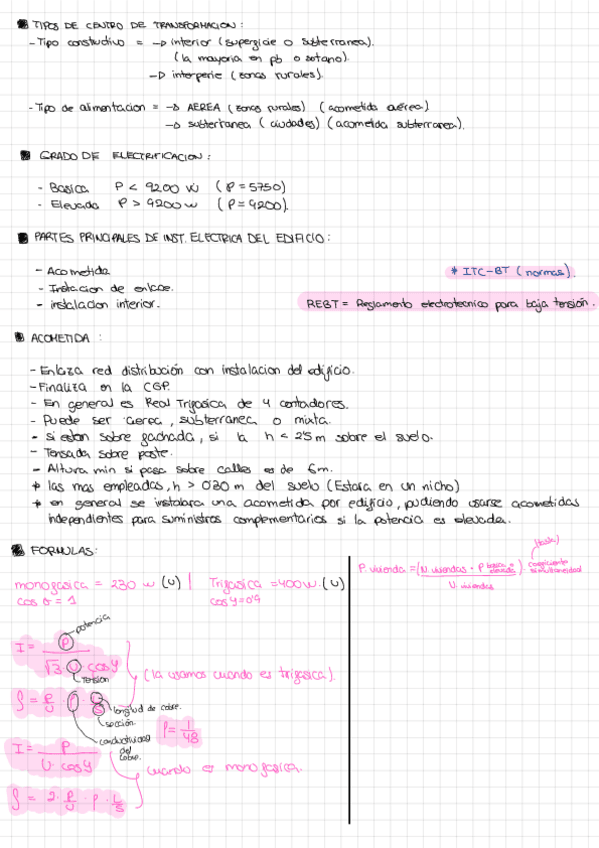 TIPOS DE CENTRO DE TRANSFORMACION :
- Tipo constuctivo = → interior (supergicie o subterranea).
(la mayoria en pb o sotano).
→ interperie ( zonas rurales).
- Tipo de alimentacion = → AEREA ( zonas rurales) ( acometida aérea)
→ subterranea ( ciudades) ( acometida subterranea).
GRADO DE ELECTRIFICACION :
- Basica P < 9200 w ( P = 5750)
- Elevado P > 9200 w ( P = 9200).
PARTES PRINCIPALES DE INST. ELECTRICA DEL EDIFICIO :
- Acometida
* ITC-BT ( normas).
- Instacion de enlace.
- instalacion interior.
REBT = Reglamento electrotecnico para baja tensión.
ACOMETIDA :
- Enlaza red distribución con instalacion del edificio.
- Finaliza en la CGP.
- En general es Real Trigasica de 4 contadores.
- Puede ser aerea, subterranea o mixta.
- si estan sobre gachada, si la h < 2'5 m sobre el suelo.
- Tensada sobre poste.
- Altura min si pasa sobre calles es de 6m.
* las mas empleadas, h > 0'30 m del suelo (Estara en un nicho)
* en general se instalara una acometida por edificio, pudiendo usarse acometidas
independientes para suministros complementarios si la potencia es elevada.
FORMULAS:
monogasica = 230 w (U) | Trigasica = 400 w. (U)
cos σ = 1 cos φ = 0'9
potencia
I = P / √3 · U · cos φ
Tension
(la usamos cuando es trigasica).
longitud de cobre.
sección.
conductividad del cobre.
ρ = 1/48
I = P / U · cos φ
cuando es monogasica.
(tabla)
P. vivienda = (N. viviendas · P basica o elevada) · coeficiente simultaneidad